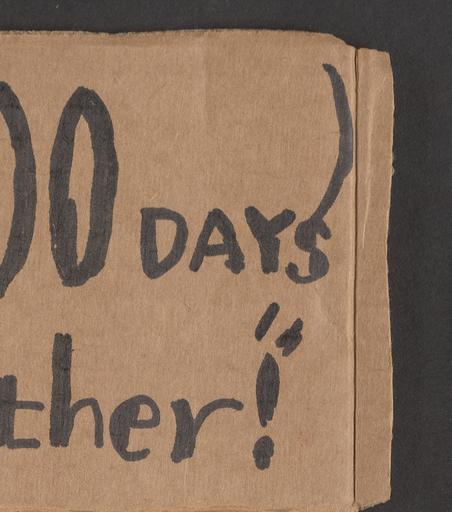 00 DAYS)
ther!"